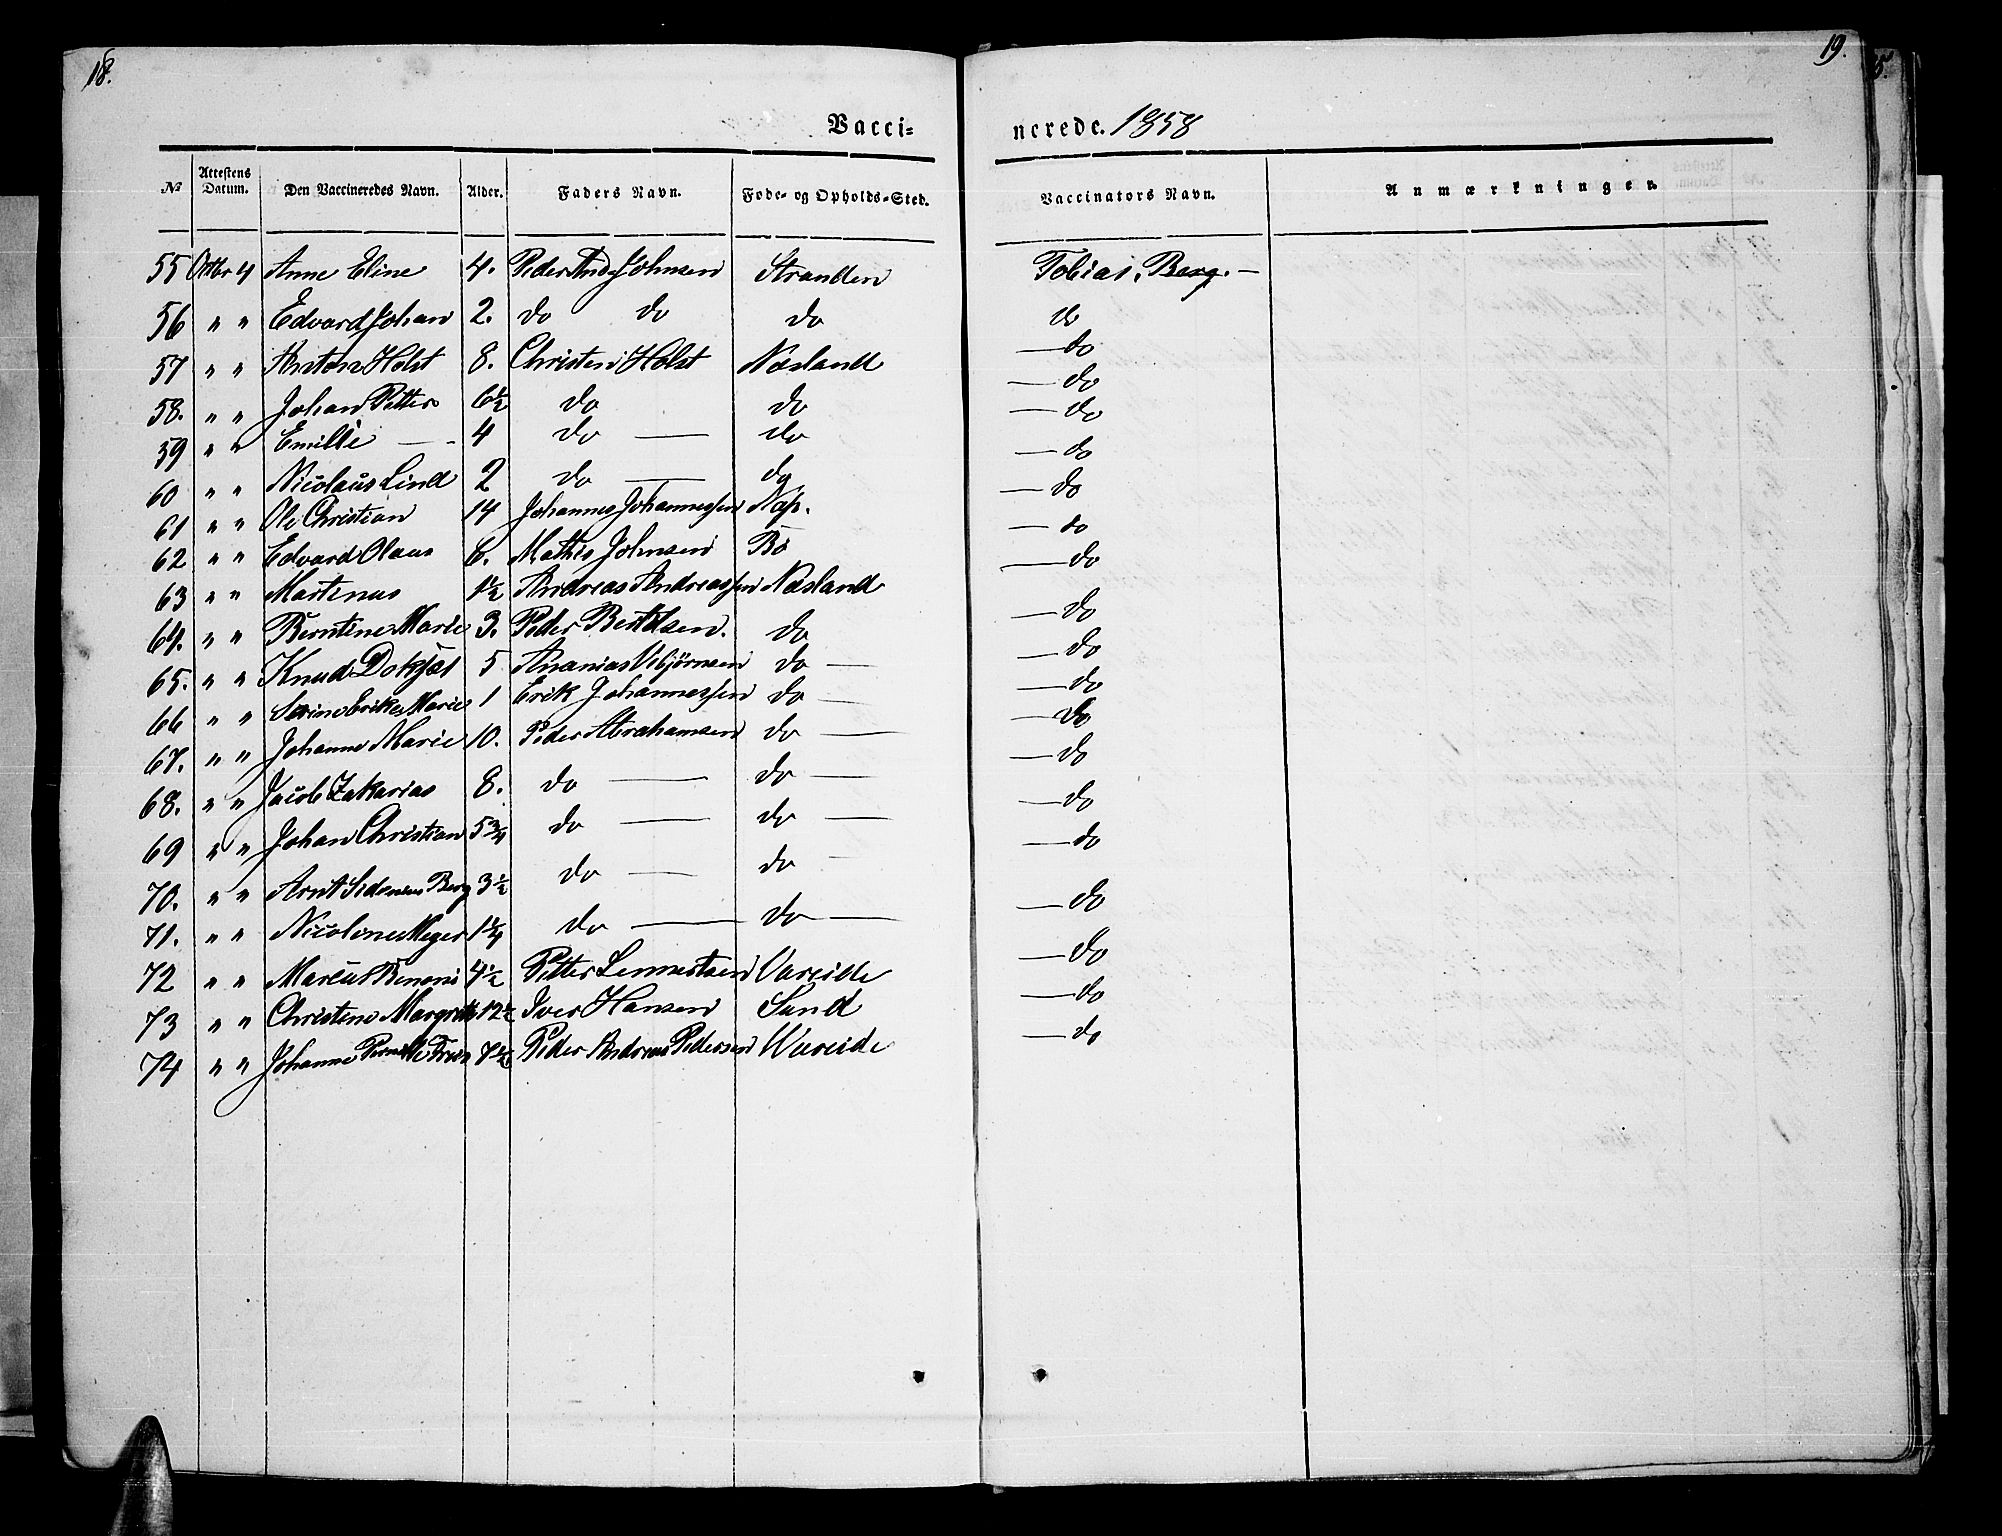 18.
19.
Vacci-
nerede. 1858
№ Attestens Datum. Den Vaccineredes Navn. Alder. Faders Navn. Føde- og Opholds-Sted. Vaccinators Navn. Anmærkninger.
55 Octbr 4 Anne Eline 4. Peder And. Johnsen Stranden Tobias. Berg. —
56 " " Edvard Johan 2. do do do do
57 " " Anton Holst 8. Christen Holst Næsland — do
58. " " Johan Petter 6½ do do — do
59 " " Emilie — 4 do — do — do
60 " " Nicolaus Lind 2 do — do — do
61 " " Ole Christian 14 Johannes Johannessen Nap. — do
62 " " Edvard Olaus 6. Mathis Johnsen Bø — do
63 " " Martinus 1½ Andreas Andreassen Næsland — do
64. " " Berntine Marie 3. Peder Bertelsen. do — do
65. " " Knud 5 Ananias do — — do
66 " " Marie 1 Erik Johannessen do — — do
67. " " Johanne Marie 10. Peder Abrahamsen do — — do
68. " " Jacob Zakarias 8. do — do — — do
69 " " Johan Christian 5¾ do — do — — do
70. " " Arnt Berg 3½ do — do — — do
71. " " Nicoline Meyer 1¼ do — do — — do
72 " " Marcus Benoni 4½ Petter Lennertsen Vareide — do
73 " " Christine Margrethe 12½ Iver Hansen Sund — do
74 " " Johanne Pernille 7½ Peder Andreas Pedersen Wareide — do